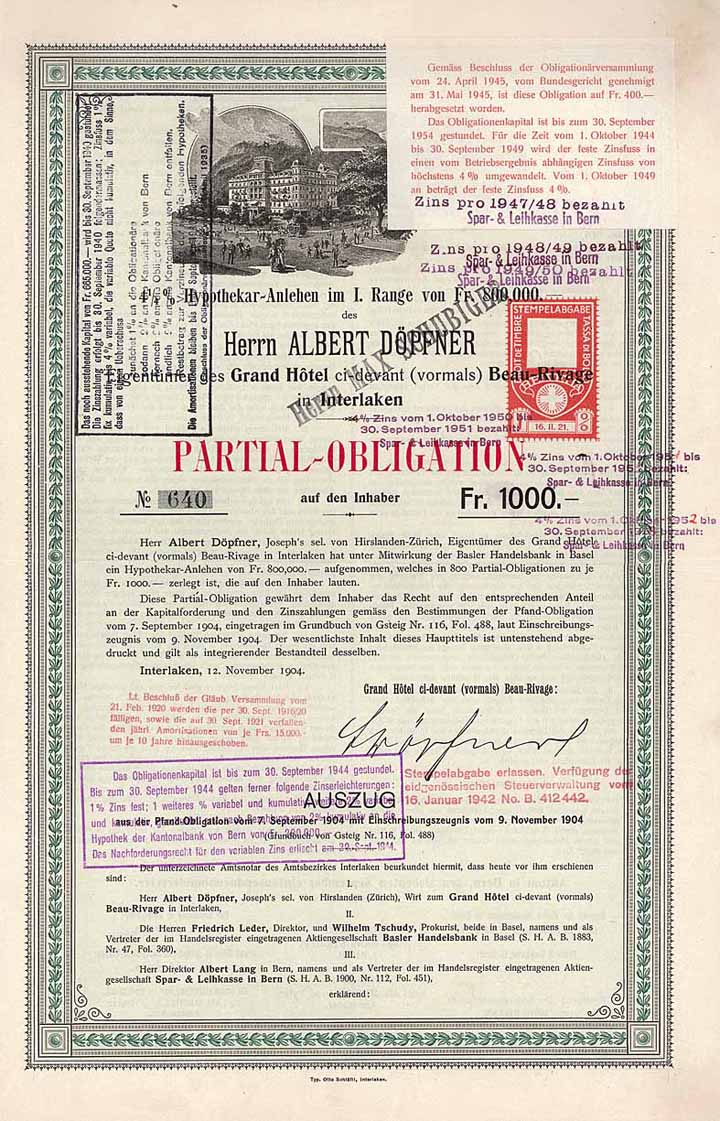 Gemäss Beschluss der Obligationärversammlung
vom 24. April 1945, vom Bundesgericht genehmigt
am 31. Mai 1945, ist diese Obligation auf Fr. 400.—
herabgesetzt worden.
Das Obligationenkapital ist bis zum 30. September
1954 gestundet. Für die Zeit vom 1. Oktober 1944
bis 30. September 1949 wird der feste Zinsfuss in
einen vom Betriebsergebnis abhängigen Zinsfuss von
höchstens 4 % umgewandelt. Vom 1. Oktober 1949
an beträgt der feste Zinsfuss 4 %.
Zins pro 1947/48 bezahlt
Spar- & Leihkasse in Bern
Zins pro 1948/49 bezahlt
Spar- & Leihkasse in Bern
Zins pro 1949/50 bezahlt
Spar- & Leihkasse in Bern
Das noch ausstehende Kapital von Fr. 665,000.— wird bis 30. September 1940 gestundet
Die Zinszahlung erfolgt bis 30. September 1940 folgendermassen: Zinsfuss 1 %
Hypothekar-Anlehen im I. Range von Fr. 800,000.—
des
Herrn ALBERT DÖPFNER
Eigentümer des Grand Hôtel ci-devant (vormals) Beau-Rivage
in Interlaken
STEMPELABGABE
DROIT DE TIMBRE
TASSA DI BOLLO
16. II. 21.
4% Zins vom 1. Oktober 1950 bis
30. September 1951 bezahlt:
Spar- & Leihkasse in Bern
PARTIAL-OBLIGATION
4% Zins vom 1. Oktober 195 bis
30. September 195 bezahlt:
Spar- & Leihkasse in Bern
№ 640
auf den Inhaber
Fr. 1000.—
4% Zins vom 1. Oktober 1952 bis
30. September 195 bezahlt:
Spar- & Leihkasse in Bern
Herr Albert Döpfner, Joseph's sel. von Hirslanden-Zürich, Eigentümer des Grand Hôtel
ci-devant (vormals) Beau-Rivage in Interlaken hat unter Mitwirkung der Basler Handelsbank in Basel
ein Hypothekar-Anlehen von Fr. 800,000.— aufgenommen, welches in 800 Partial-Obligationen zu je
Fr. 1000.— zerlegt ist, die auf den Inhaber lauten.
Diese Partial-Obligation gewährt dem Inhaber das Recht auf den entsprechenden Anteil
an der Kapitalforderung und den Zinszahlungen gemäss den Bestimmungen der Pfand-Obligation
vom 7. September 1904, eingetragen im Grundbuch von Gsteig Nr. 116, Fol. 488, laut Einschreibungs-
zeugnis vom 9. November 1904. Der wesentlichste Inhalt dieses Haupttitels ist untenstehend abge-
druckt und gilt als integrierender Bestandteil desselben.
Interlaken, 12. November 1904.
Grand Hôtel ci-devant (vormals) Beau-Rivage:
Lt. Beschluß der Gläub. Versammlung vom
21. Feb. 1920 werden die per 30. Sept. 1916/20
fälligen, sowie die auf 30. Sept. 1921 verfallen-
den jährl. Amortisationen von je Frs. 15.000.-
um je 10 Jahre hinausgeschoben.
Stempelabgabe erlassen. Verfügung der
eidgenössischen Steuerverwaltung vom
16. Januar 1942 No. B. 412442.
Das Obligationenkapital ist bis zum 30. September 1944 gestundet.
Bis zum 30. September 1944 gelten ferner folgende Zinserleichterungen:
1% Zins fest; 1 weiteres % variabel und kumulativ
Hypothek der Kantonalbank von Bern von
Das Nachforderungsrecht für den variablen Zins erlischt am 30. Sept. 1944.
AUSZUG
aus der Pfand-Obligation vom 7. September 1904 mit Einschreibungszeugnis vom 9. November 1904
(Grundbuch von Gsteig Nr. 116, Fol. 488)
Der unterzeichnete Amtsnotar des Amtsbezirkes Interlaken beurkundet hiermit, dass heute vor ihm erschienen
sind:
I.
Herr Albert Döpfner, Joseph's sel. von Hirslanden (Zürich), Wirt zum Grand Hôtel ci-devant (vormals)
Beau-Rivage in Interlaken,
II.
Die Herren Friedrich Leder, Direktor, und Wilhelm Tschudy, Prokurist, beide in Basel, namens und als
Vertreter der im Handelsregister eingetragenen Aktiengesellschaft Basler Handelsbank in Basel (S. H. A. B. 1883,
Nr. 47, Fol. 360),
III.
Herr Direktor Albert Lang in Bern, namens und als Vertreter der im Handelsregister eingetragenen Aktien-
gesellschaft Spar- & Leihkasse in Bern (S. H. A. B. 1900, Nr. 112, Fol. 451),
erklärend:
Typ. Otto Schläfli, Interlaken.